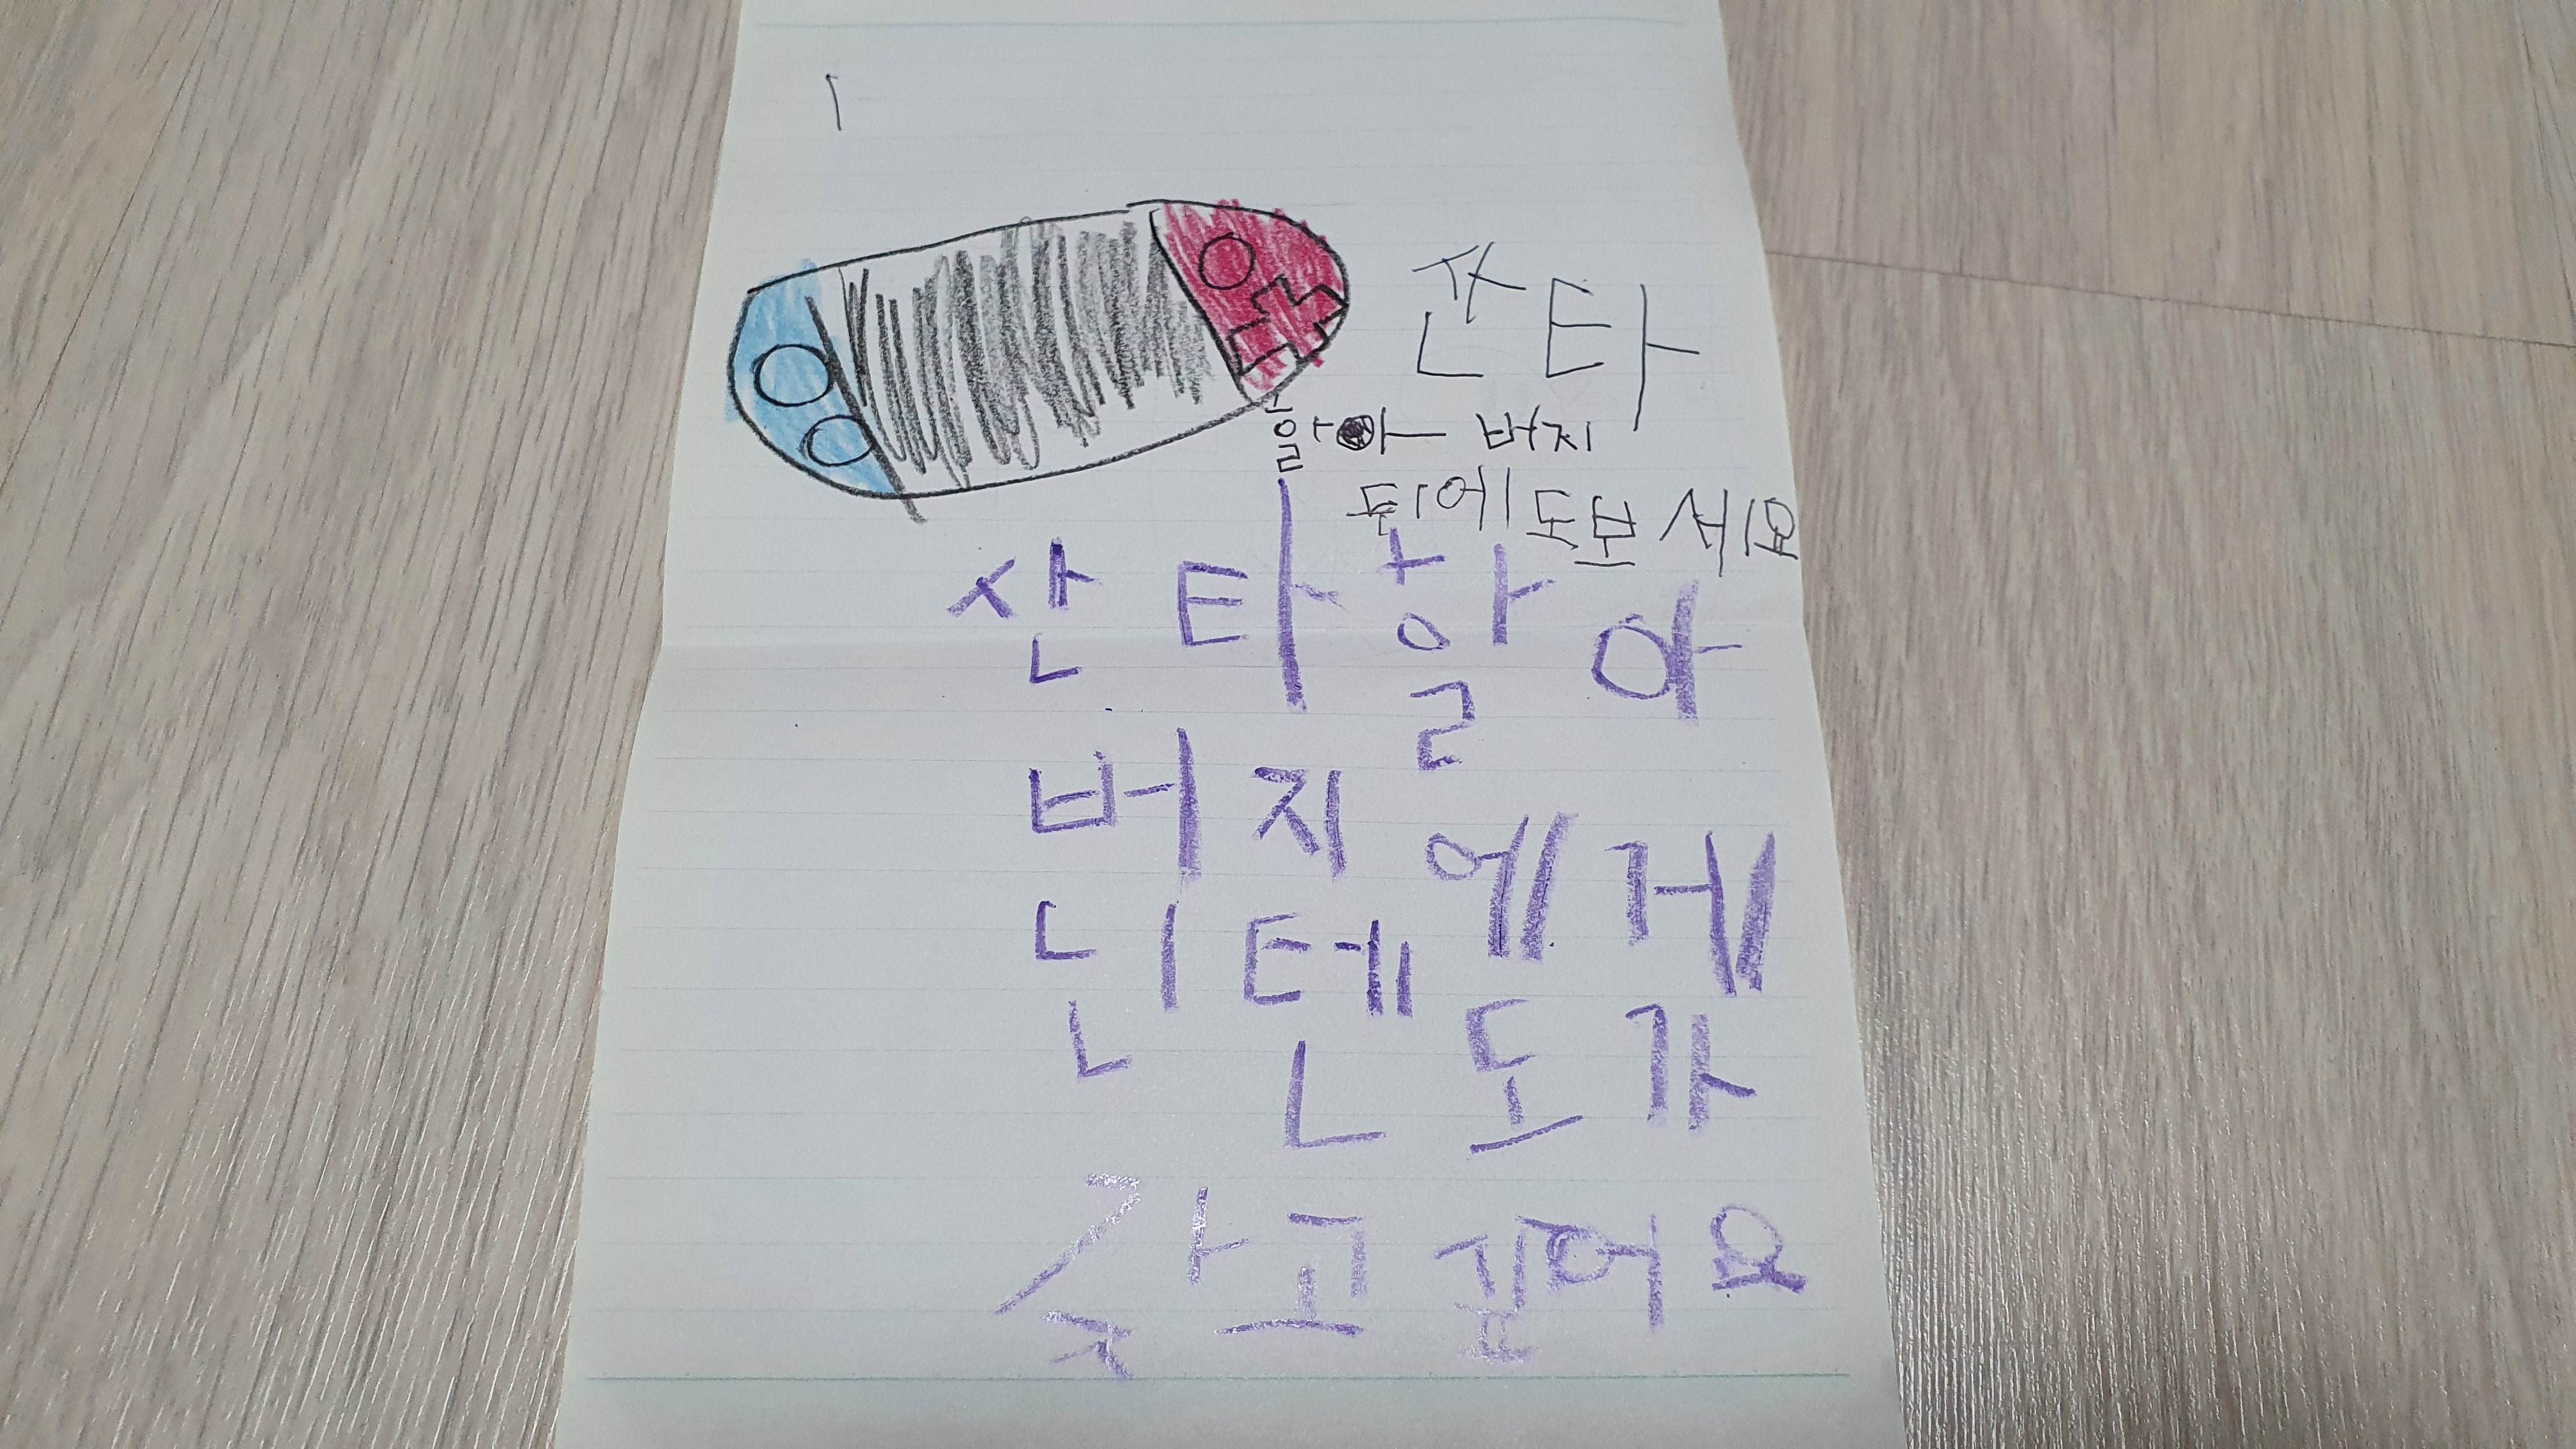 산타
할아버지
뒤에도보세요
산타할아
버지에게
닌텐도가
갖고싶어요